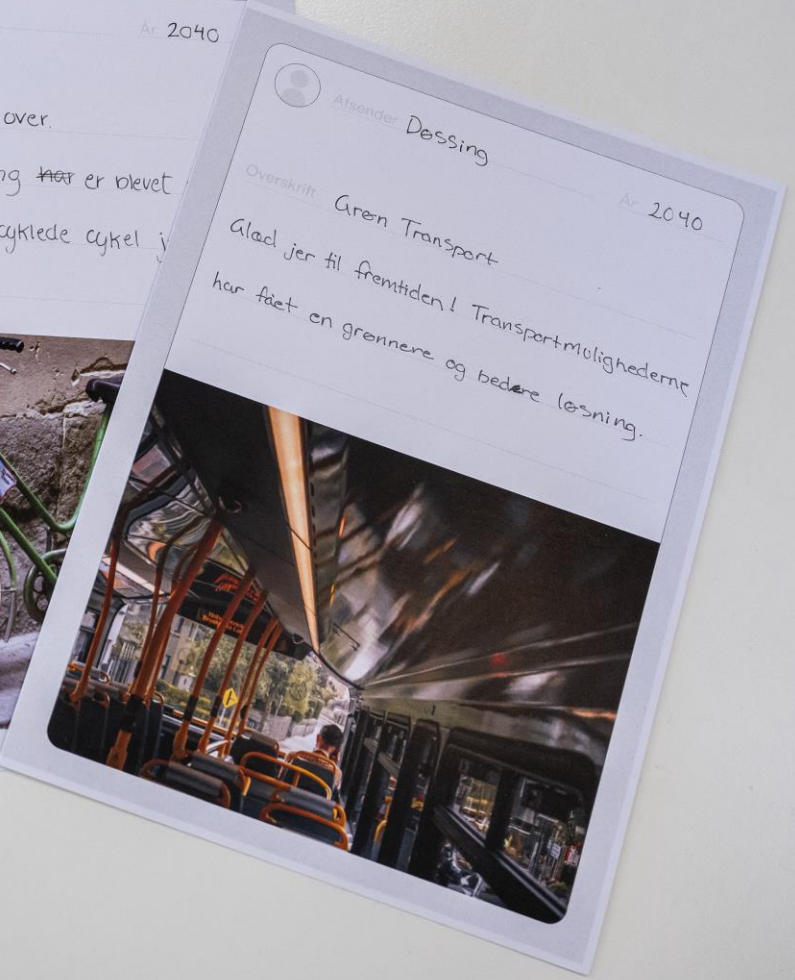 År 2040
over.
ng har er blevet
cyklede cykel j
Afsender Døssing
År 2040
Overskrift Grøn Transport
Glæd jer til fremtiden! Transportmulighederne
har fået en grønnere og bedre løsning.